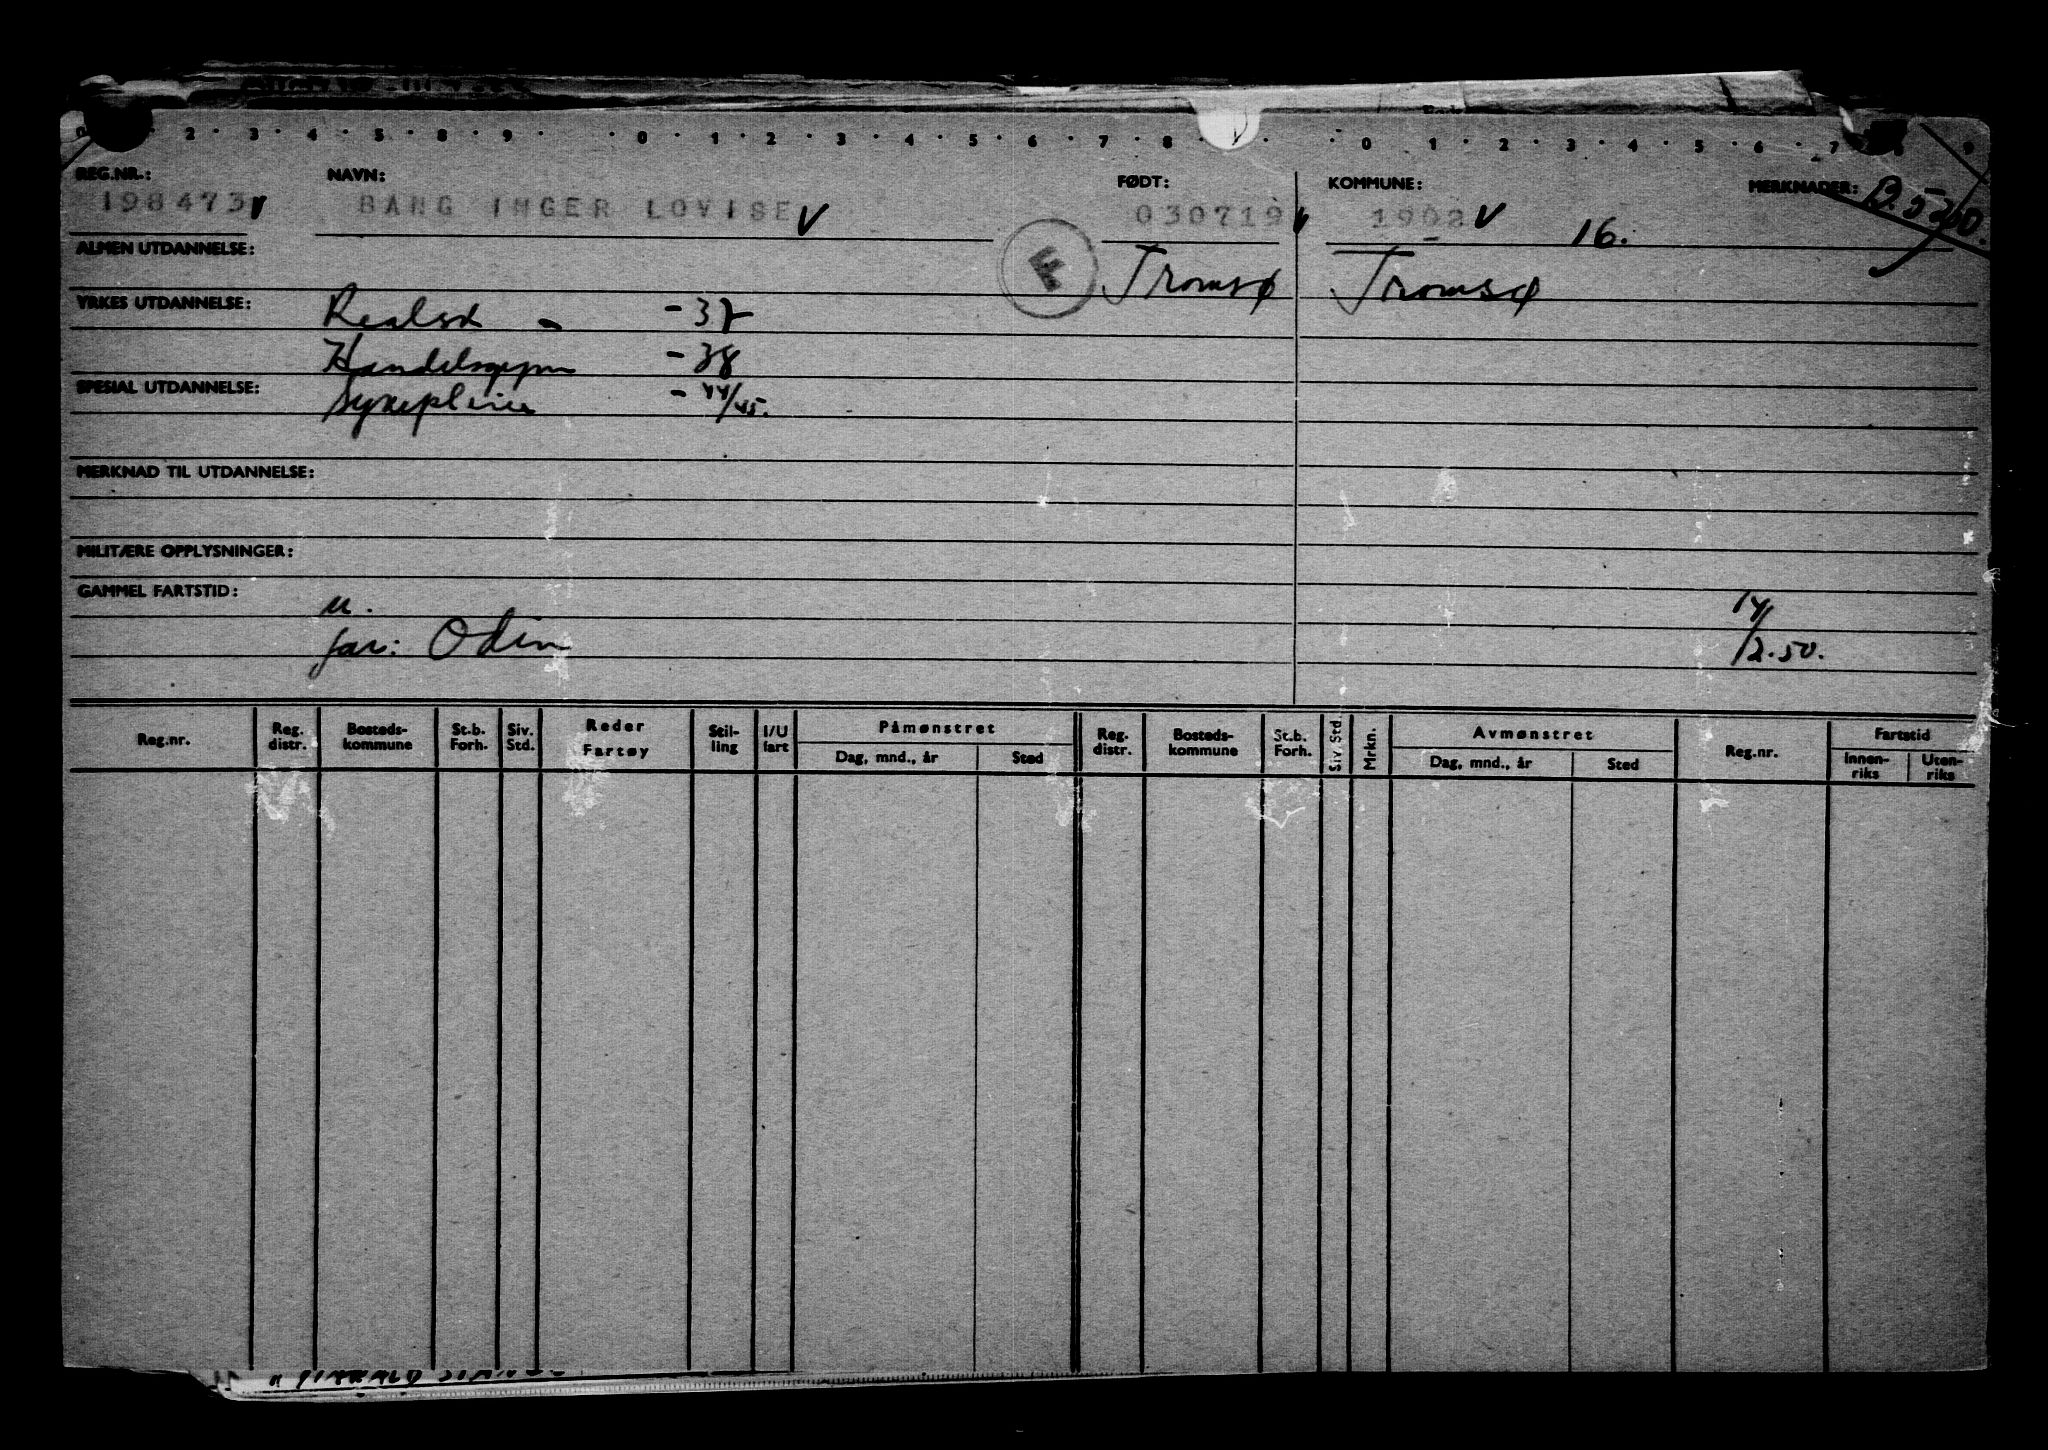 2 · 3 · 4 · 5 · 8 · 9 · · 0 · 1 · 2 · 3 · 4 · 5 · 6 · 7 · 8 · · · 0 · 1 · 2 · 3 · 4 · 5 · 6 · 7 8 9
REG.NR.: NAVN: FØDT: KOMMUNE: MERKNADER: B. 5300.
198473 V BANG INGER LOVISE V 030719 V 1902 V 16.
ALMEN UTDANNELSE: F Tromsø Tromsø
YRKES UTDANNELSE: Realsk - -37
Handelsgymn -38
SPESIAL UTDANNELSE: Sykepleie - 44/45.
MERKNAD TIL UTDANNELSE:
MILITÆRE OPPLYSNINGER:
GAMMEL FARTSTID:
u. 14/
far: Odin /2.50.
Reg.nr. Reg. distr. Bosteds- kommune St.b. Forh. Siv. Std. Reder Fartøy Stil- ling I/U fart Påmønstret Reg. distr. Bosteds- kommune St.b. Forh. Siv. Std. Mrkn. Avmønstret Reg.nr. Fartstid
Dag, mnd., år Sted Dag, mnd., år Sted Innen- riks Uten- riks